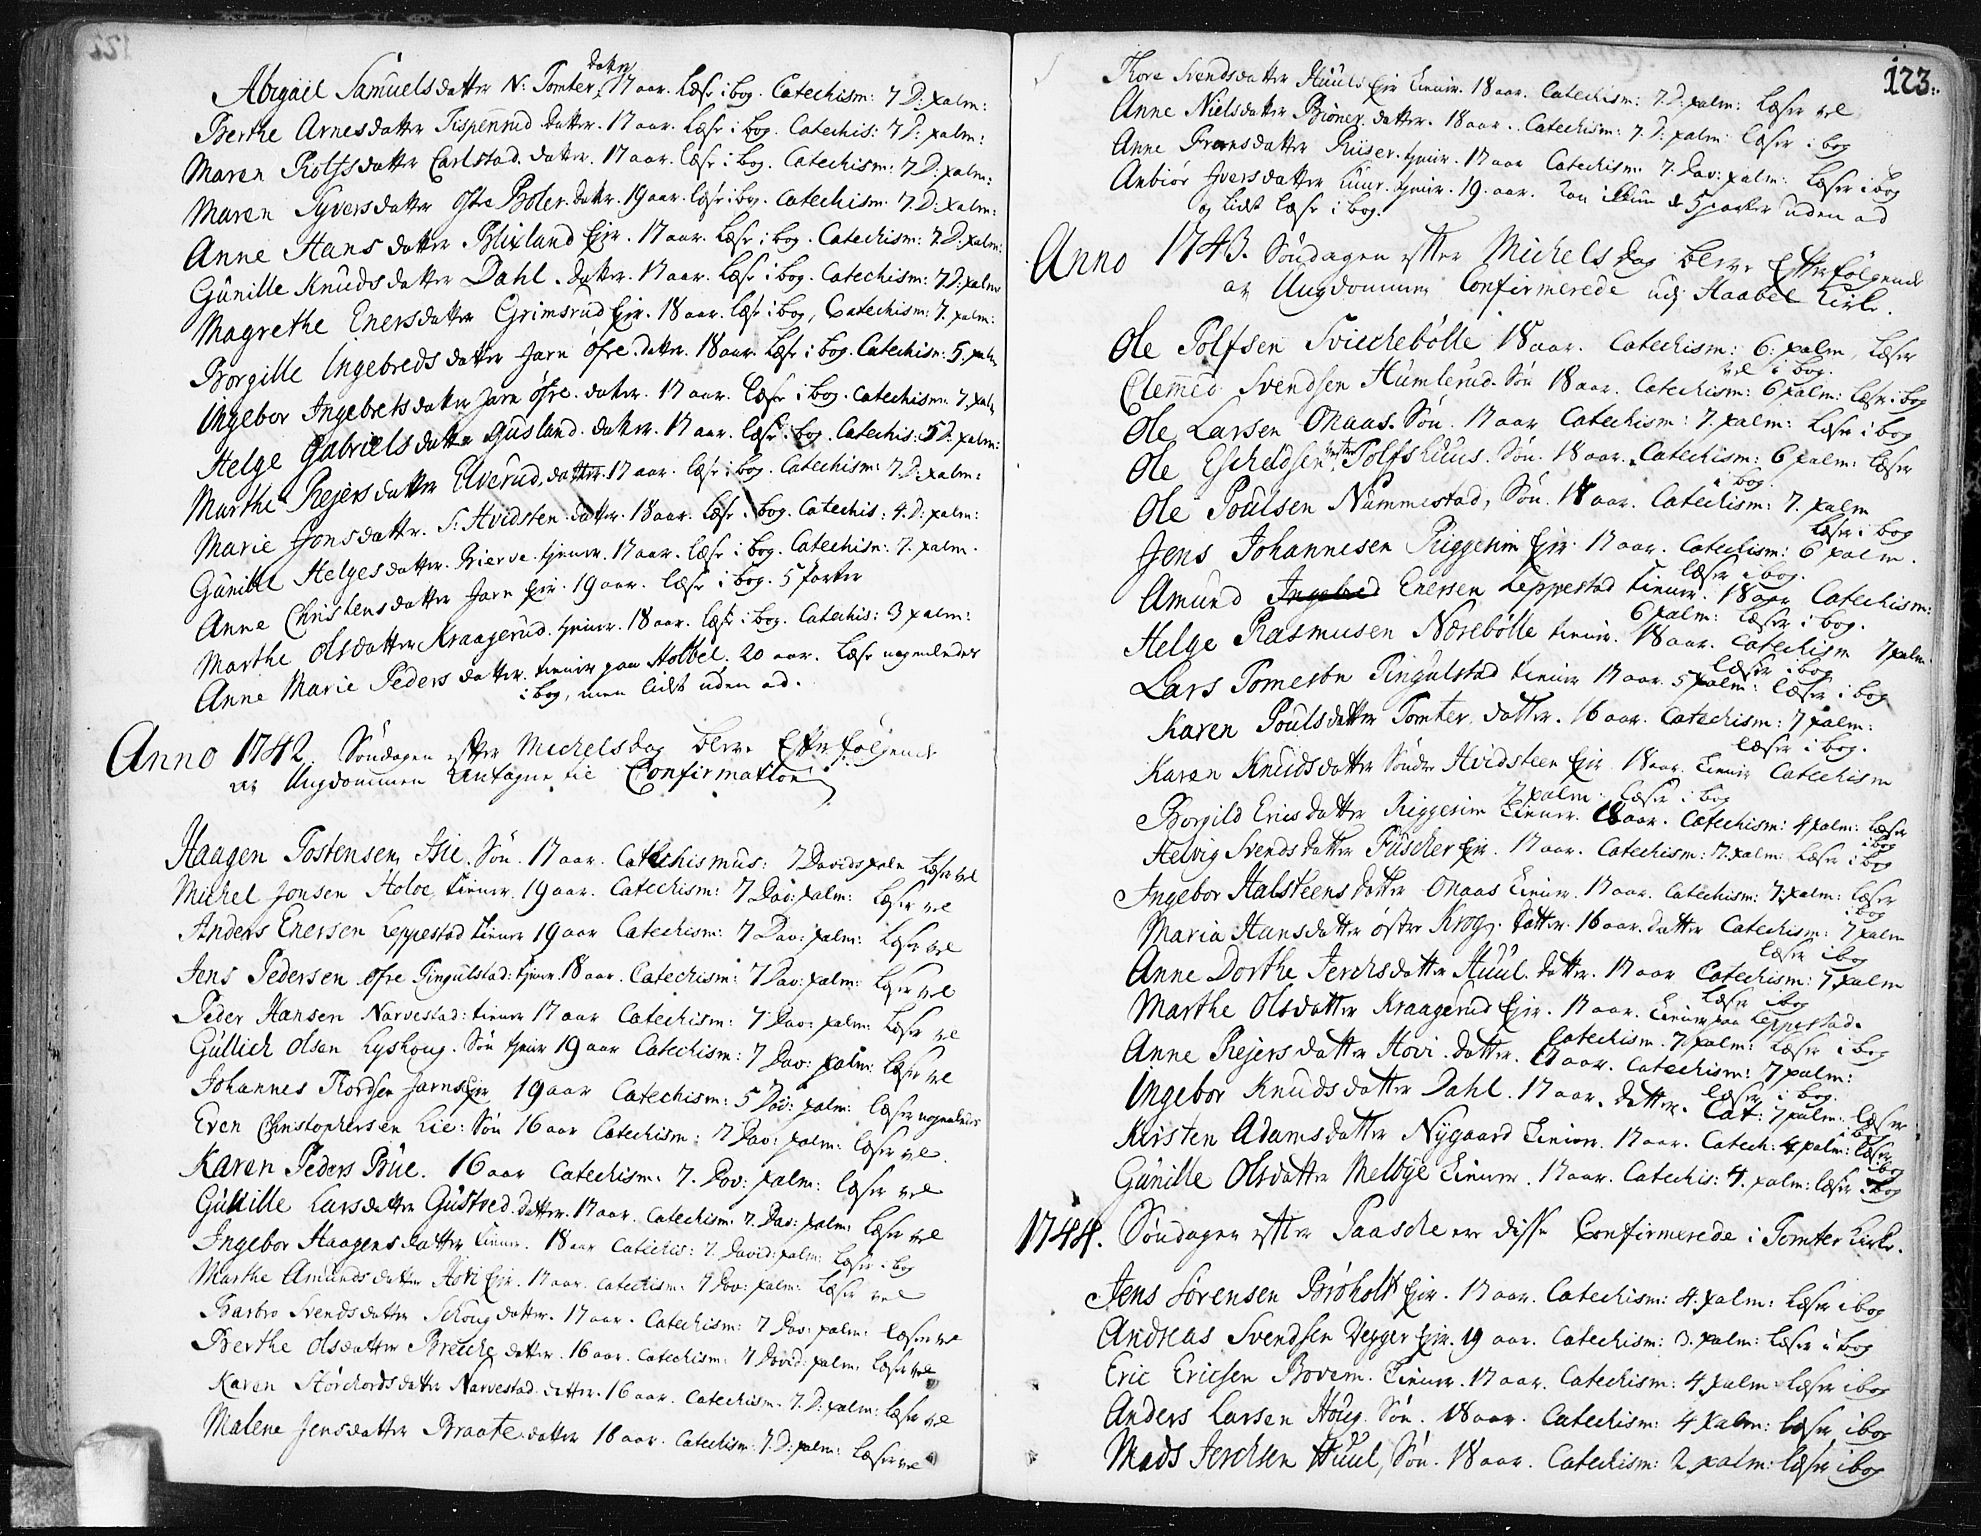 datter
Abigael Samuelsdatter N: Tomter, 17 aar. Læser i bog. Catechism: 7 D: psalm:
Berthe Arnesdatter Tispenrud datter. 17 aar. Læser i bog. Catechis: 7 D: psalm:
Maren Rolfsdatter Carlstad. datter. 17 aar. læser i bog. Catechism: 7 D: psalm:
Maren Syversdatter Øfre Boler. datter. 19 aar. læser i bog. Catechism. 7. D: psalm:
Anne Hansdatter Blixland Eier. 17 aar. Læser i bog. Catechism: 7. D: psalm:
Gunille Knudsdatter Dahl. datter. 17 aar. Læser i bog. Catechism: 7 D: psalm
Magrethe Enersdatter Grimsrud Eier. 18 aar. læser i bog, Catechism: 7. psalm:
Borgille Ingebredsdatter Jarn øfre. datter. 18 aar. Læser i bog. Catechism: 5. psalm
Ingebor Ingebretsdatter Jarn øfre. datter. 17 aar. Læser i bog. Catechism: 7. psalm
Helge Gabrielsdatter Gusland. datter. 17 aar. læser i bog. Catechis: 5 D: psalm:
Marthe Rejersdatter Elverud. datter. 17 aar. læser i bog. Catechism: 7. D: psalm:
Marie Jonsdatter. S: Hvidsten. datter. 18 aar. læser i bog. Catechis: 4. D: psalm:
Gunille Helgesdatter. Brierve. tjener. 17 aar. læser i bog. Catechism: 7. psalm.
Anne Christensdatter Jarn Eier. 19 aar. læser i bog. 5 Parter
Marthe Olsdatter Kraagerud. tjener. 18 aar. læser i bog. Catechis: 3 psalm:
Anne Marie Pedersdatter. tiener paa Holbel. 20 aar. Læser nogenledes
i bog, men lidet uden ad.
Anno 1742 Søndagen efter Michelsdag bleve Efterfølgende
av Ungdommen Antagne til Confirmation
Haagen Tostensen, Hie. Søn. 17 aar. Catechismus: 7 Davids psalm Læser vel
Michel Jonsen Holøe, tiener. 19 aar. Catechism: 7 Dav: psalm: Læser vel
Anders Enersen Leppestad tiener 19 aar Catechism: 7 Dav: psalm: Læser vel
Jens Pedersen øfre Ringulstad: tjener. 18 aar. Catechism: 7 Dav: psalm: Læser vel
Peder Hansen Narvestad: tiener 17 aar Catechism: 7 Dav: psalm: Læser vel
Gullich Olsen Lyshoug. Søn tjener 19 aar Catechism: 7 Dav: psalm: Læser vel
Johannes Thordsen Jarns Eier 19 aar Catechism: 5 Dav: psalm: læser nogenledes
Even Christophersen Lie: Søn 16 aar Catechism: 7 Dav: psalm: læser vel.
Karen Peders Brue. 16 aar Catechism: 7. Dav: psalm: læser vel
Gunille Larsdatter Gustved. datter. 17 aar. Catechism. 7. Dav: psalm: Læser vel
Ingebor Haagensdatter tiener. 18 aar Catechis: 7. David: psalm: Læser i bog
Marthe Amundsdatter Hovi Eier. 17 aar. Catechism: 7 Dav: psalm: Læser vel
Barbro Svendsdatter Schoug datter. 17 aar. Catechism: 7 Dav: psalm: læser vel
Berthe Olsdatter Breche datter. 16 aar. Catechism: 7 David: psalm: Læser vel
Karen Størchordsdatter Narvestad. datter. 16 aar. Catechism. 7. D: psalm: læser vel
Malene Jensdatter Braate datter 16 aar. Catechism: 7. D: psalm: læser vel
123.
Thore Svendsdatter Huuls Eier tiener. 18 aar. Catechism: 7. D: psalm: Læser vel
Anne Nielsdatter Brioner. datter. 18 aar. Catechism: 7. D: psalm: læser i bog
Anne Fransdatter Ruser. tjener. 17 aar Catechism. 7. Dav: psalm: læser i bog
Anbiør Iversdatter tjener. 19. aar. 5 parter uden ad
og lidet læser i bog.
Anno 1743. Søndagen efter Michels Dag bleve Efterfølgende
av Ungdommen Confirmerede udj Haabel Kirke.
Ole Tolfsen Sviechebølle 18 aar. Catechism: 6: psalm, Læser
vel i bog.
Clemmed Svendsen Humlerud. Søn 18 aar. Catechism: 6 psalm: læser i bog
Ole Larsen Onaas. Søn. 17 aar Catechism: 7. psalm: Læser i bog
Ole Eschildsen vestre Tolfshuus. Søn. 18 aar. Catechism: 6 psalm: læser
i bog.
Ole Poulsen Nummestad, Søn. 18 aar. Catechism: 7. psalm
læser i bog
Jens Johannesen Riggesim Eier. 17 aar. Catechism: 6 psalm.
læser i bog.
Amund Ingebred Enersen Leppestad tiener. 18 aar Catechism:
6 psalm: læser i bog.
Helge Rasmusen Nærebølle tiener. 18 aar. Catechism 7 psalm.
læser i bog
Lars Tomesøn Ringulstad tiener 17 aar. 5 psalm: læser i bog
Karen Poulsdatter Tomter. datter. 16 aar. Catechism: 7 psalm:
læser i bog.
Karen Knudsdatter Søndre Hvidsteen Eier 18 aar. tiener Catechism
7 psalm: læser i bog
Borgild Ericsdatter Riggesim tiener. 18 aar. Catechism: 4 psalm: læser
i bog
Helvig Svendsdatter Puscher Eier. 17 aar. Catechism: 7. psalm: læser i bog
Ingebor Halsteensdatter Onaas tiener. 17 aar. Catechism: 7. psalm: læser
i bog
Maria Hansdatter østre Krog. datter. 16 aar. datter Catechism: 7 psalm
læser i bog
Anne Dorthe Jerchsdatter Huul. datter. 17 aar Catechism: 7 psalm
læser i bog
Marthe Olsdatter Kraagerud Eier. 17 aar. tiener paa Leppestad.
Catechism. 7. psalm: Læser i bog
Anne Rejersdatter Hovi. datter. 17 aar. Catechism: 7 psalm:
læser i bog.
Ingebor Knudsdatter Dahl. 17 aar. datter. Cat: 7 psalm. læser
i bog
Kirsten Adamsdatter Nygaard tiener. 17 aar. Catech: 4 psalm: læser
i bog
Gunille Olsdatter Melbye tiener. 17 aar. Catechis: 4. psalm: læser i bog
1744. Søndagen efter Paasche ere disse Confirmerede i Tomter Kirke.
Jens Sørensen Brøholt Eier. 17 aar. Catechism: 4. psalm: Læser i bog
Andreas Svendsen Vegger Eier. 19 aar. Catechism: 3. psalm: læser i bog
Eric Ericsen Bovem. tiener. 17 aar. Catechism: 4 psalm læser i bog
Anders Larsen Houg. Søn. 18 aar. Catechism: 4 psalm: læser i bog
Mads Jerchsen Huul, Søn. 18 aar. Catechism: 2 psalm: læser i bog